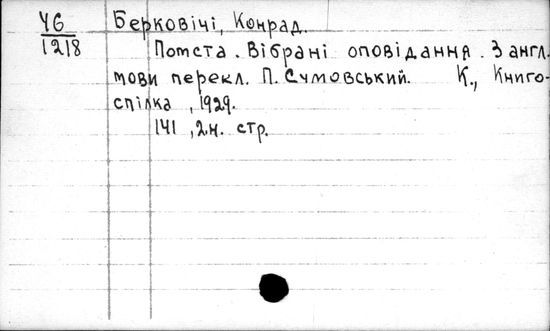 У6 Берковічі, Конрад.
1218
Помста. Вібрані оповідання. З англ.
мови перекл. П. Сумовський. К., Книго-
спілка, 1929.
141, 2 н. стр.